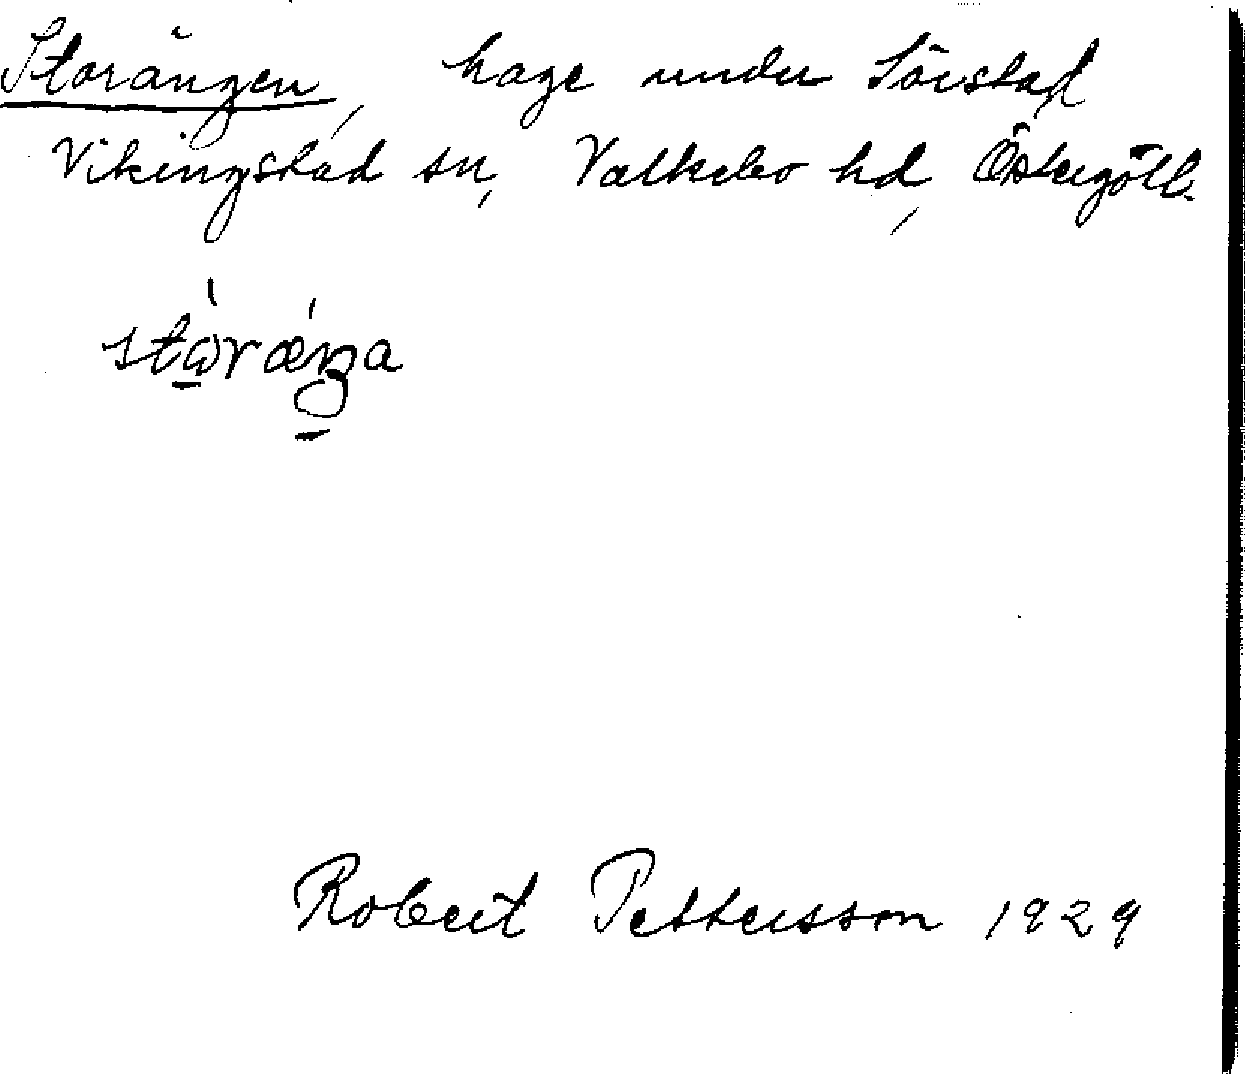 Storängen, hage under Sörstad
Vikingstad sn, Valkebo hd, Östergötl.
stωràŋa
Robert Pettersson 1929